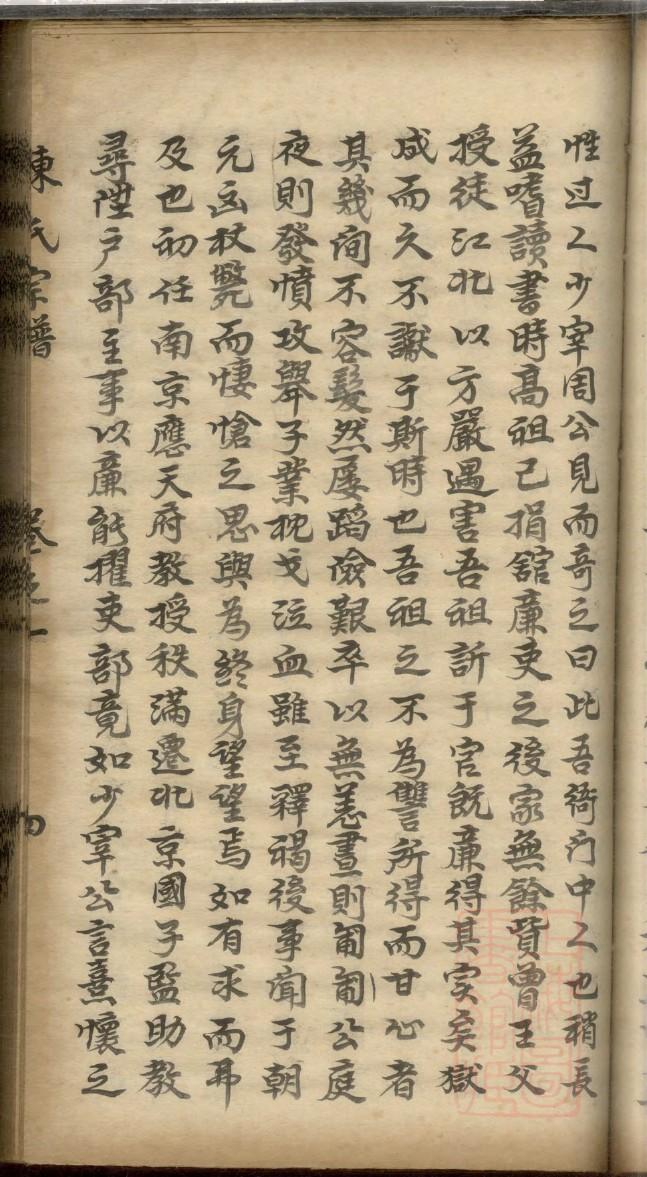 性过人少宰周公見而奇之曰此吾衙门中人也稍長
益嗜讀書時髙祖已捐舘廉吏之後家無餘貲曾王父
授徒江北以方嚴遇害吾祖訢于官既廉得其寔矣獄
成而久不讞于斯時也吾祖之不為讐所得而甘心者
其幾间不容髮然屡蹈險艱卒以無恙晝則匍匐公庭
夜則發憤攻舉子業枕戈泣血雖至釋褐後事闻于朝
元凶杖斃而悽愴之思與為終身望望焉如有求而弗
及也初任南京應天府教授秩滿遷北京國子監助教
尋陞户部主事以廉能擢吏部竟如少宰公言熹懷之
陳氏宗譜 卷之一 四